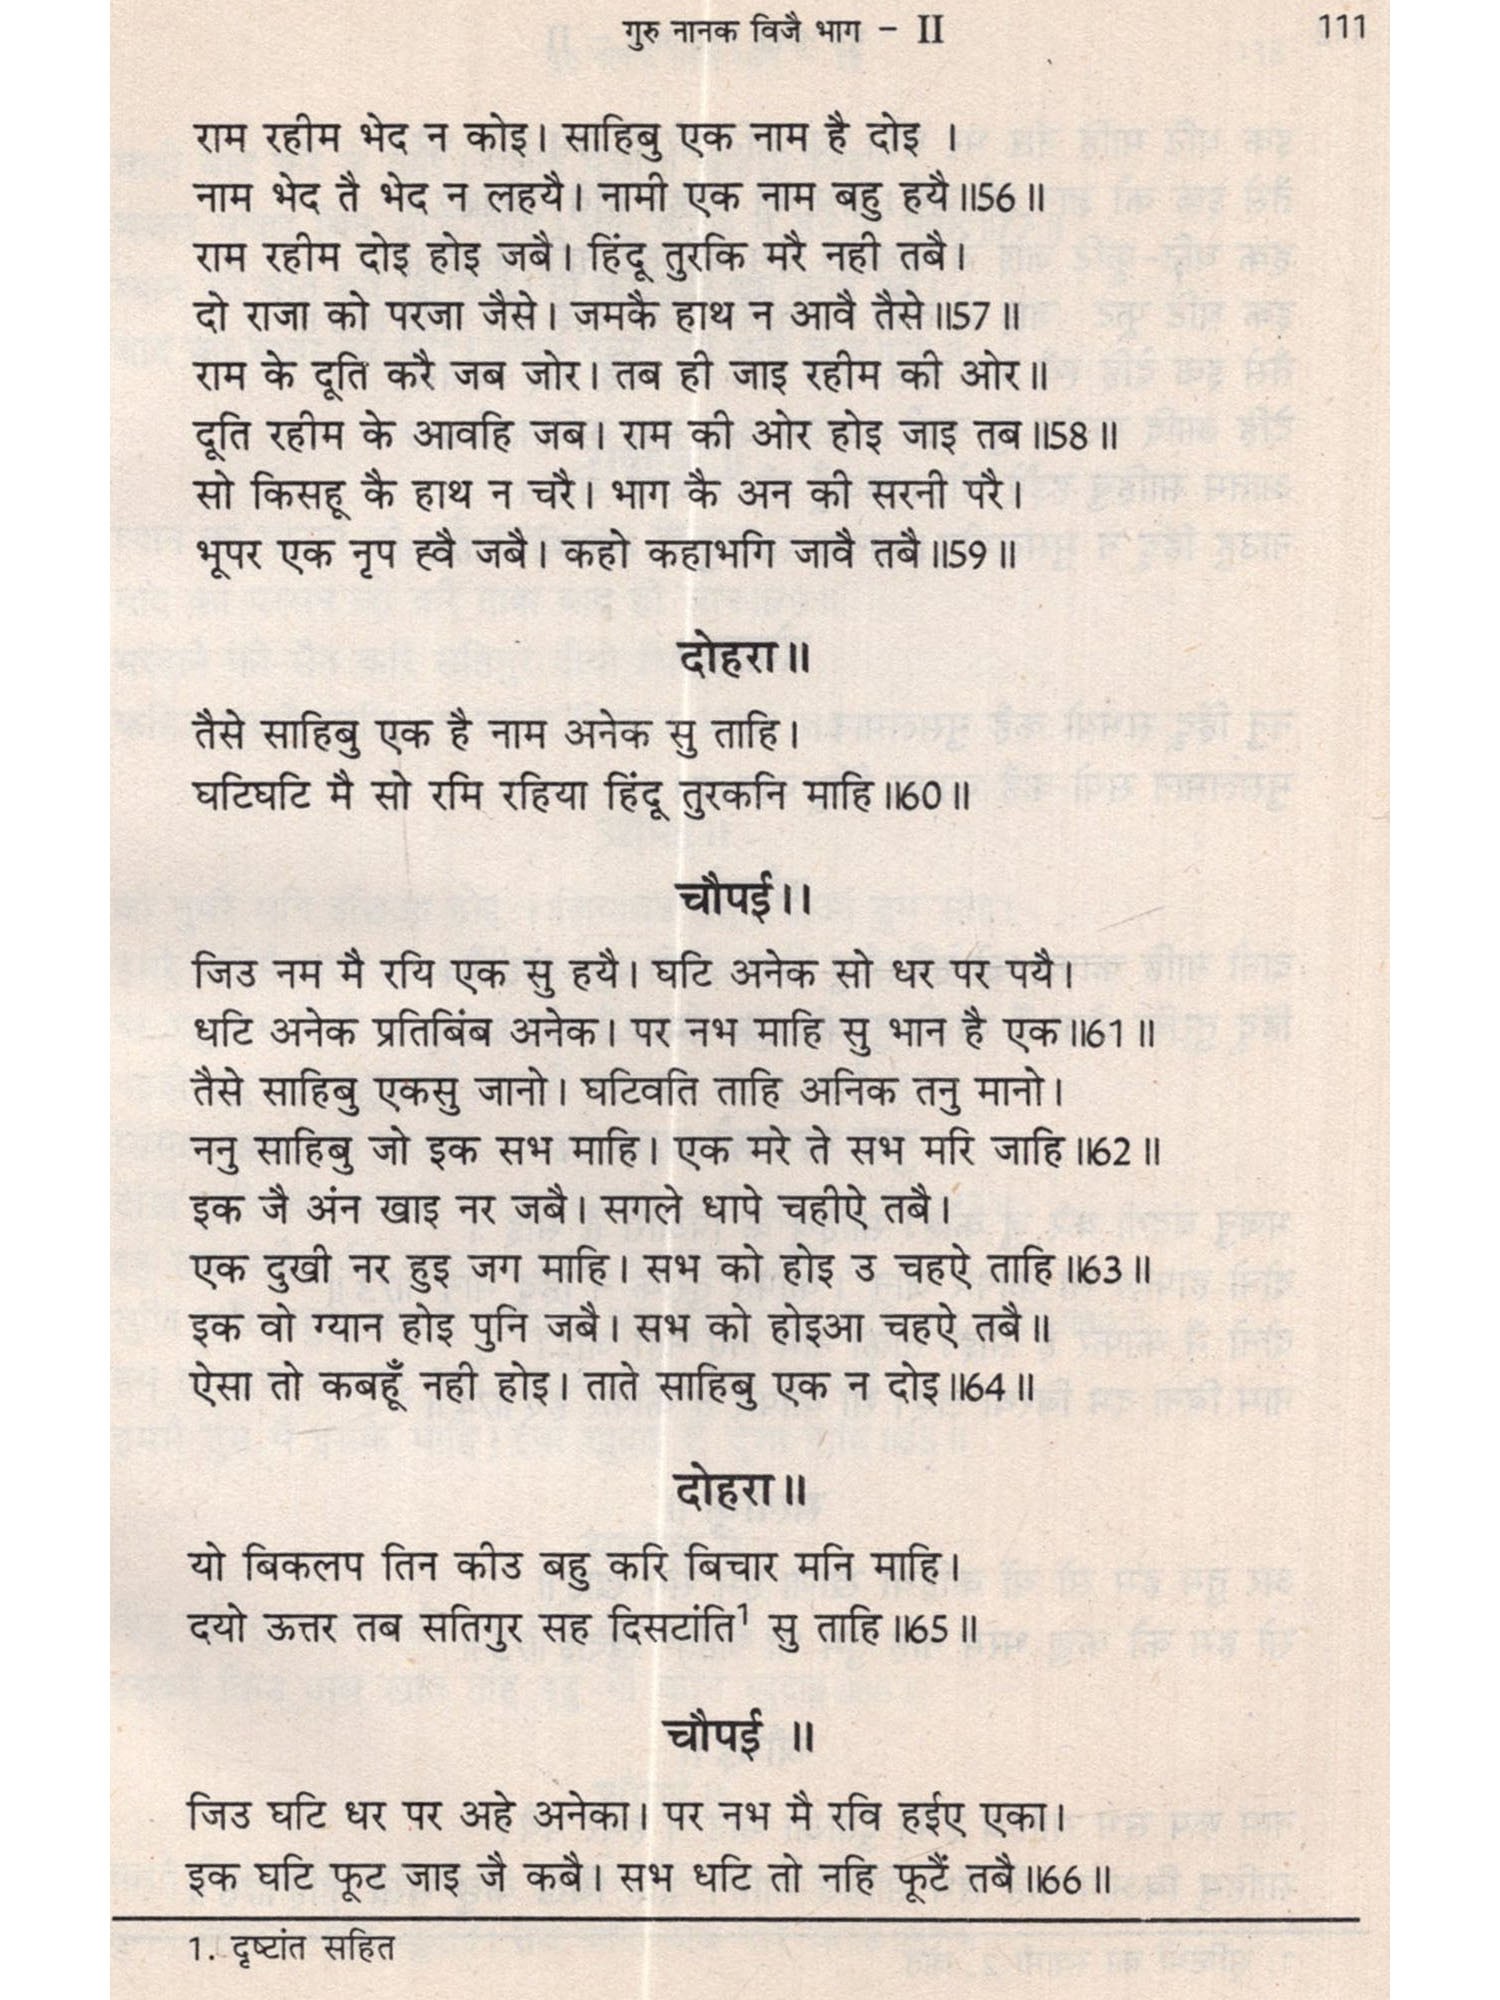 गुरु नानक विजै भाग - II 111
राम रहीम भेद न कोइ। साहिबु एक नाम है दोइ ।
नाम भेद तै भेद न लहयै। नामी एक नाम बहु हयै॥56॥
राम रहीम दोइ होइ जबै। हिंदू तुरकि मरै नही तबै।
दो राजा को परजा जैसे। जमकै हाथ न आवै तैसे॥57॥
राम के दूति करै जब जोर। तब ही जाइ रहीम की ओर॥
दूति रहीम के आवहि जब। राम की ओर होइ जाइ तब॥58॥
सो किसहू कै हाथ न चरै। भाग कै अन की सरनी परै।
भूपर एक नृप ह्वै जबै। कहो कहाभगि जावै तबै॥59॥
दोहरा॥
तैसे साहिबु एक है नाम अनेक सु ताहि।
घटिघटि मै सो रमि रहिया हिंदू तुरकनि माहि॥60॥
चौपई।।
जिउ नम मै रयि एक सु हयै। घटि अनेक सो धर पर पयै।
धटि अनेक प्रतिबिंब अनेक। पर नभ माहि सु भान है एक॥61॥
तैसे साहिबु एकसु जानो। घटिवति ताहि अनिक तनु मानो।
ननु साहिबु जो इक सभ माहि। एक मरे ते सभ मरि जाहि॥62॥
इक जै अंन खाइ नर जबै। सगले धापे चहीऐ तबै।
एक दुखी नर हुइ जग माहि। सभ को होइ उ चहऐ ताहि॥63॥
इक वो ग्यान होइ पुनि जबै। सभ को होइआ चहऐ तबै॥
ऐसा तो कबहूँ नही होइ। ताते साहिबु एक न दोइ॥64॥
दोहरा॥
यो बिकलप तिन कीउ बहु करि बिचार मनि माहि।
दयो ऊत्तर तब सतिगुर सह दिसटांति¹ सु ताहि॥65॥
चौपई ॥
जिउ घटि धर पर अहे अनेका। पर नभ मै रवि हईए एका।
इक घटि फूट जाइ जै कबै। सभ धटि तो नहि फूटैं तबै॥66॥
1. दृष्टांत सहित